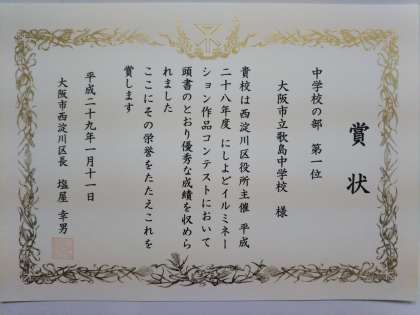 賞状
中学校の部 第一位
大阪市立歌島中学校 様
貴校は西淀川区役所主催 平成
二十八年度 にしよどイルミネー
ション作品コンテストにおいて
頭書のとおり優秀な成績を収めら
れました
ここにその栄誉をたたえこれを
賞します
平成二十九年一月十一日
大阪市西淀川区長 塩屋 幸男